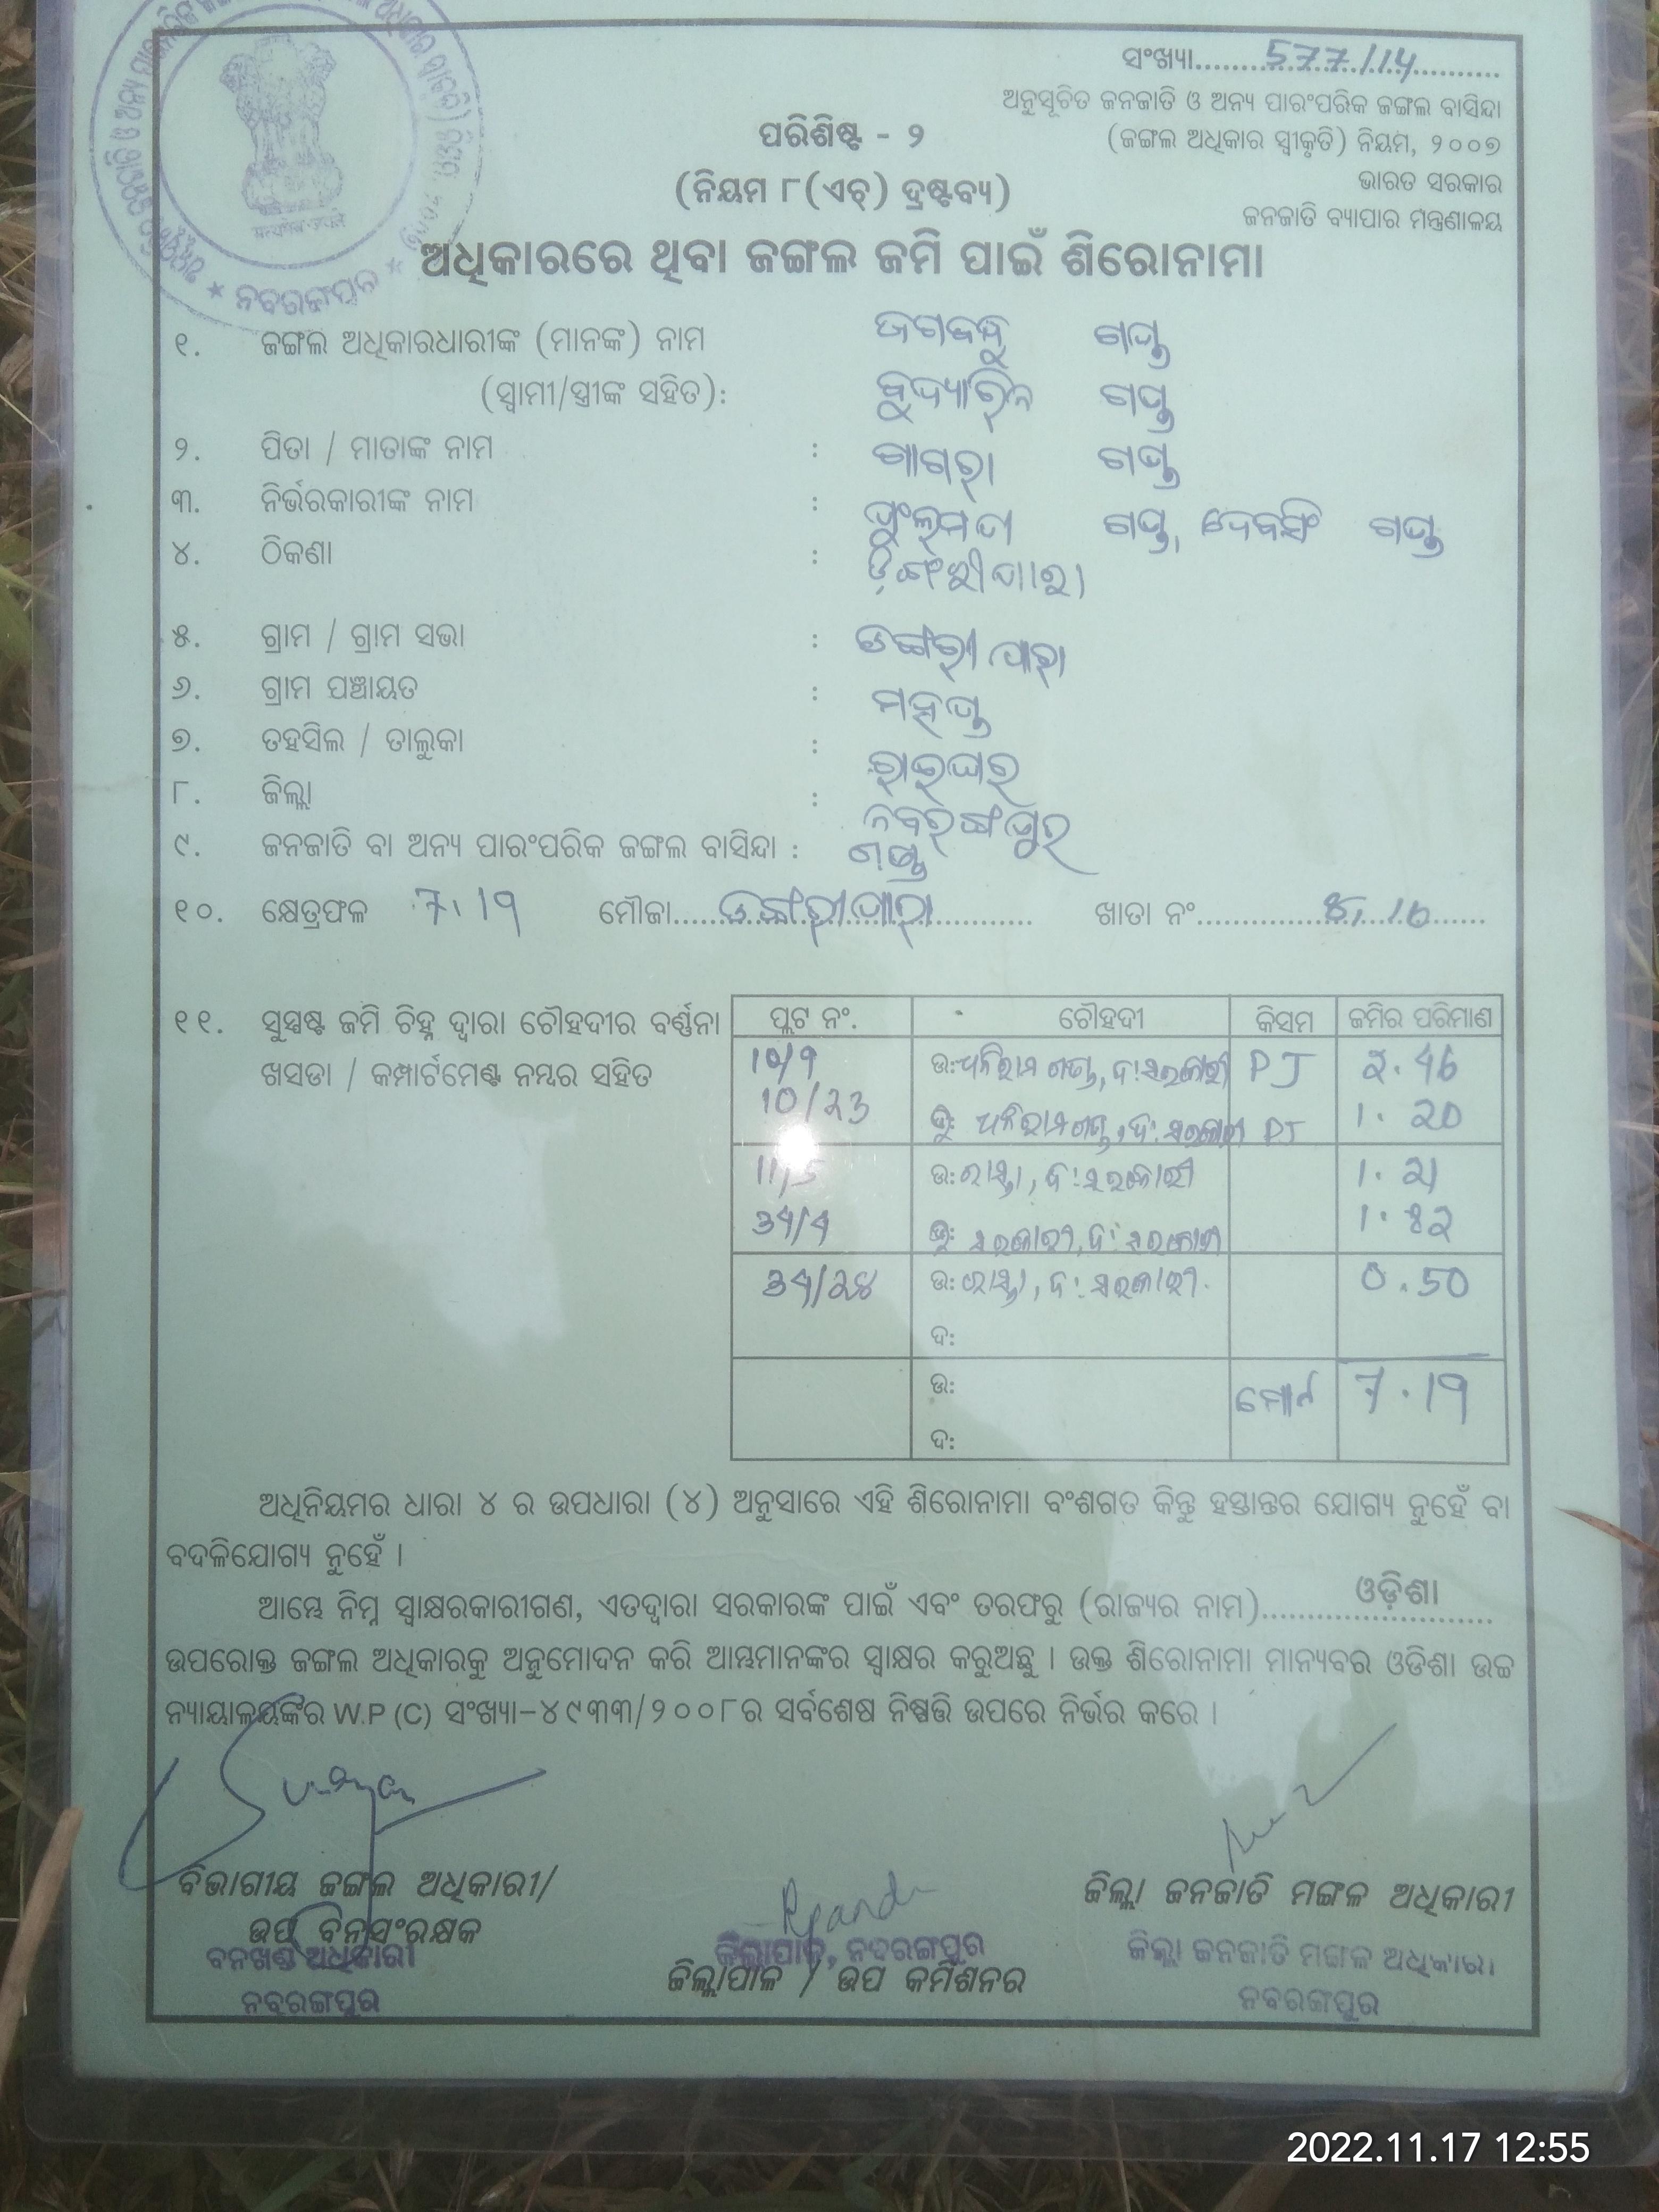 ସଂଖ୍ୟା.......577/14..........
ଅନୁସୂଚିତ ଜନଜାତି ଓ ଅନ୍ୟ ପାରଂପରିକ ଜଙ୍ଗଲ ବାସିନ୍ଦା
ପରିଶିଷ୍ଟ - ୨
(ଜଙ୍ଗଲ ଅଧିକାର ସ୍ୱୀକୃତି) ନିୟମ, ୨୦୦୭
(ନିୟମ ୮(ଏଚ୍) ଦ୍ରଷ୍ଟବ୍ୟ)
ଭାରତ ସରକାର
ଜନଜାତି ବ୍ୟାପାର ମନ୍ତ୍ରଣାଳୟ
ନବରଙ୍ଗପୁର
ଅଧିକାରରେ ଥିବା ଜଙ୍ଗଲ ଜମି ପାଇଁ ଶିରୋନାମା
୧. ଜଙ୍ଗଲ ଅଧିକାରଧାରୀଙ୍କ (ମାନଙ୍କ) ନାମ ଜଗବନ୍ଧୁ ଗଣ୍ଡ
(ସ୍ୱାମୀ/ସ୍ତ୍ରୀଙ୍କ ସହିତ): ଗଣ୍ଡ
୨. ପିତା / ମାତାଙ୍କ ନାମ : ଗଣ୍ଡ
୩. ନିର୍ଭରକାରୀଙ୍କ ନାମ : ଗଣ୍ଡ, ଦେବସିଂ ଗଣ୍ଡ
୪. ଠିକଣା : ଡଙ୍ଗରୀପାରା
୫. ଗ୍ରାମ / ଗ୍ରାମ ସଭା : ଡଙ୍ଗରୀପାରା
୬. ଗ୍ରାମ ପଞ୍ଚାୟତ :
୭. ତହସିଲ / ତାଲୁକା : ରାଇଘର
୮. ଜିଲ୍ଲା : ନବରଙ୍ଗପୁର
୯. ଜନଜାତି ବା ଅନ୍ୟ ପାରଂପରିକ ଜଙ୍ଗଲ ବାସିନ୍ଦା : ଗଣ୍ଡ
୧୦. କ୍ଷେତ୍ରଫଳ 7.19 ମୌଜା.....ଡଙ୍ଗରୀପାରା.......... ଖାତା ନଂ....................
୧୧. ସୁସ୍ପଷ୍ଟ ଜମି ଚିହ୍ନ ଦ୍ୱାରା ଚୌହଦୀର ବର୍ଣ୍ଣନା
ଖସଡା / କମ୍ପାର୍ଟମେଣ୍ଟ ନମ୍ବର ସହିତ
ପ୍ଲଟ ନଂ. ଚୌହଦୀ କିସମ ଜମିର ପରିମାଣ
10/9 ଉ:ଧନିରାମ ଗଣ୍ଡ, ଦ:ସରକାରୀ PJ 2.46
10/23 ଧନିରାମ ଗଣ୍ଡ, ଦ: ସରକାରୀ PJ 1.20
11/5 ଉ:ରାସ୍ତା, ଦ:ସରକାରୀ 1.21
ସରକାରୀ, ଦ: ସରକାରୀ 1.82
ଉ:ରାସ୍ତା, ଦ:ସରକାରୀ. 0.50
ଦ:
ଉ: ମୋଟ 7.19
ଦ:
ଅଧିନିୟମର ଧାରା ୪ ର ଉପଧାରା (୪) ଅନୁସାରେ ଏହି ଶିରୋନାମା ବଂଶଗତ କିନ୍ତୁ ହସ୍ତାନ୍ତର ଯୋଗ୍ୟ ନୁହେଁ ବା
ବଦଳିଯୋଗ୍ୟ ନୁହେଁ ।
ଆମ୍ଭେ ନିମ୍ନ ସ୍ୱାକ୍ଷରକାରୀଗଣ, ଏତଦ୍ୱାରା ସରକାରଙ୍କ ପାଇଁ ଏବଂ ତରଫରୁ (ରାଜ୍ୟର ନାମ).......ଓଡ଼ିଶା.......
ଉପରୋକ୍ତ ଜଙ୍ଗଲ ଅଧିକାରକୁ ଅନୁମୋଦନ କରି ଆମ୍ଭମାନଙ୍କର ସ୍ୱାକ୍ଷର କରୁଅଛୁ । ଉକ୍ତ ଶିରୋନାମା ମାନ୍ୟବର ଓଡିଶା ଉଚ୍ଚ
ନ୍ୟାୟାଳୟଙ୍କର W.P (C) ସଂଖ୍ୟା–୪୯୩୩/୨୦୦୮ର ସର୍ବଶେଷ ନିଷ୍ପତ୍ତି ଉପରେ ନିର୍ଭର କରେ ।
ବିଭାଗୀୟ ଜଙ୍ଗଲ ଅଧିକାରୀ/
ଉପ ବନସଂରକ୍ଷକ
ବନଖଣ୍ଡ ଅଧିକାରୀ
ନବରଙ୍ଗପୁର
ଜିଲ୍ଲାପାଳ, ନବରଙ୍ଗପୁର
ଜିଲ୍ଲାପାଳ / ଉପ କମିଶନର
ଜିଲ୍ଲା ଜନଜାତି ମଙ୍ଗଳ ଅଧିକାରୀ
ଜିଲ୍ଲା ଜନଜାତି ମଙ୍ଗଳ ଅଧିକାରୀ
ନବରଙ୍ଗପୁର
2022.11.17 12:55